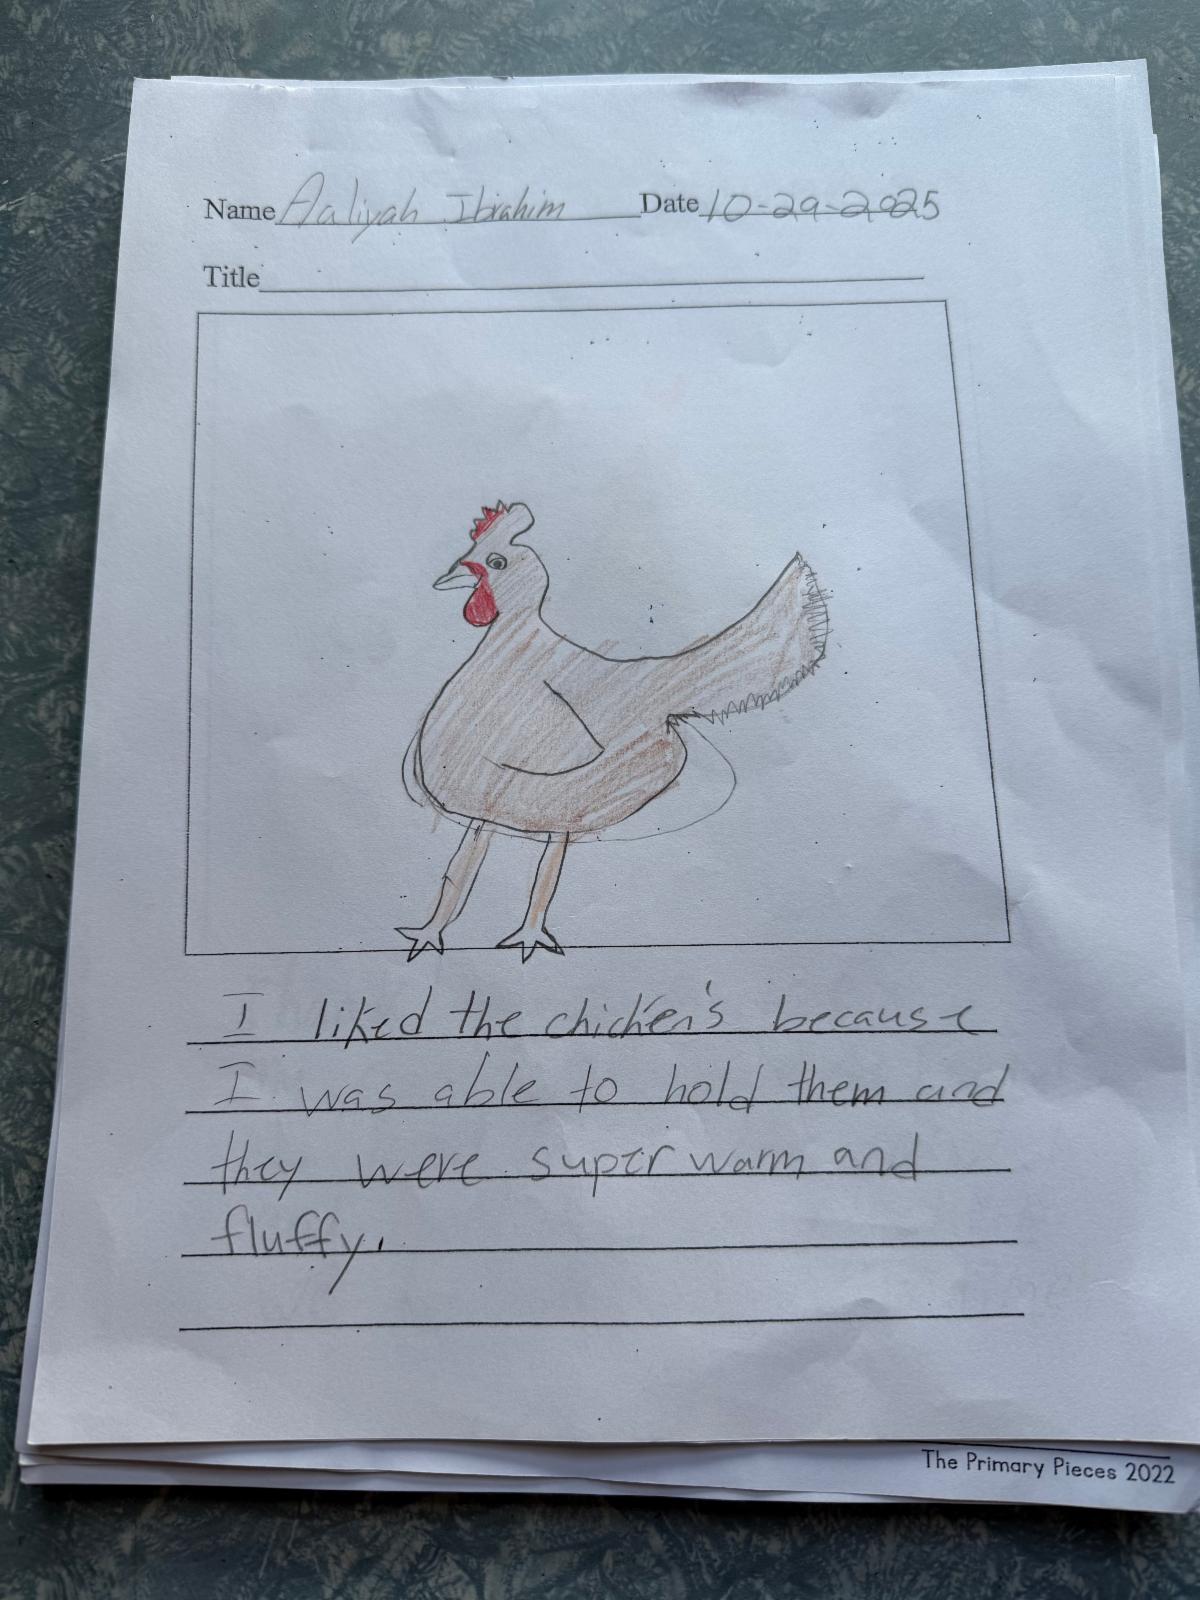 Name Aaliyah Ibrahim Date 10-29-2025
Title
I liked the chicken's because
I was able to hold them and
they were super warm and
fluffy.
The Primary Pieces 2022